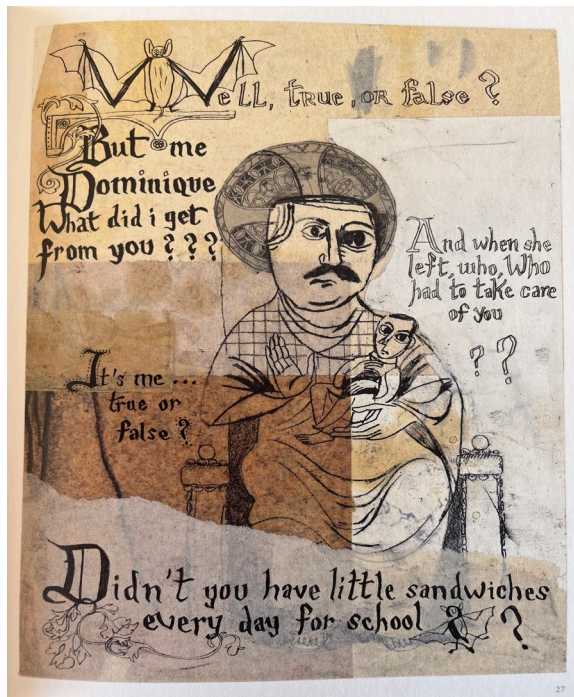 Well, true, or false ?
But me
Dominique
What did i get
from you ? ? ?
And when she
left, who, Who
had to take care
of you
? ?
It's me ...
true or
false ?
Didn't you have little sandwiches
every day for school ?
27